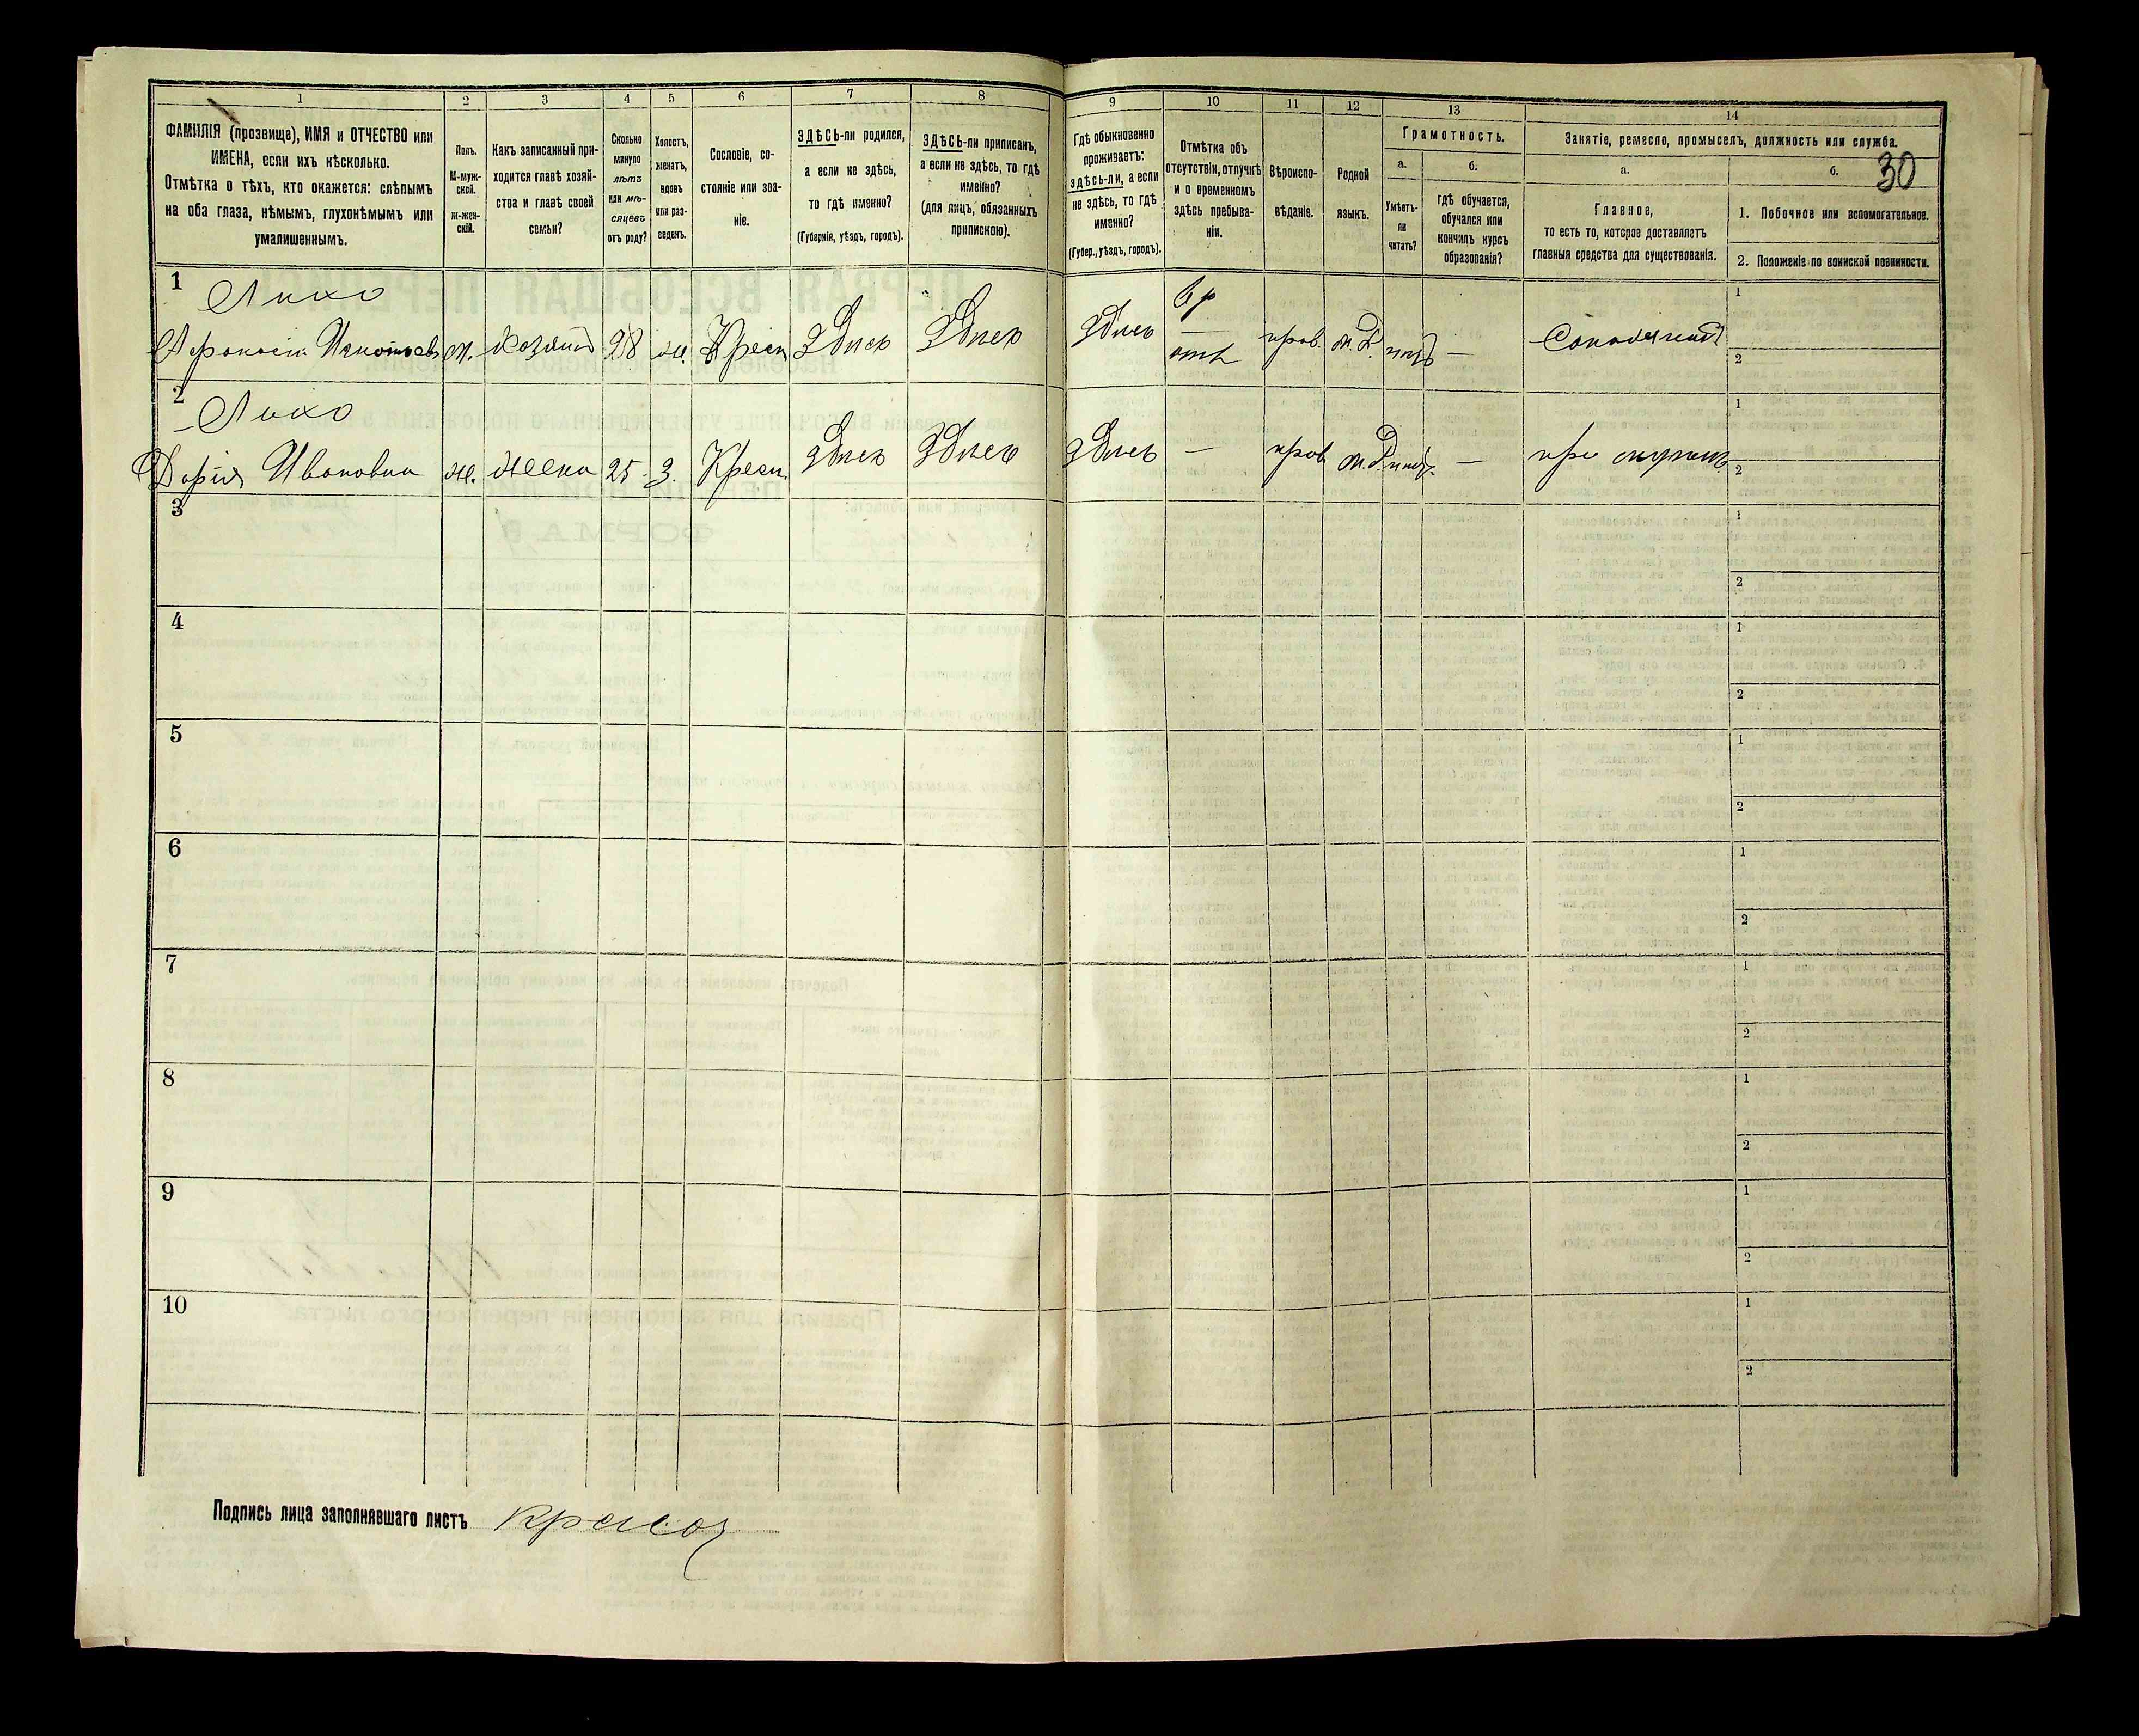 1
2
3
4
5
6
7
8
ФАМИЛІЯ (прозвище), ИМЯ и ОТЧЕСТВО или
ИМЕНА, если ихъ нѣсколько.
Отмѣтка о тѣхъ, кто окажется: слѣпымъ
на оба глаза, нѣмымъ, глухонѣмымъ или
умалишеннымъ.
Полъ.
М-муж-
ской.
Ж-жен-
скій.
Какъ записанный при-
ходится главѣ хозяй-
ства и главѣ своей
семьи?
Сколько
минуло
лѣтъ
или мѣ-
сяцевъ
отъ роду?
Холостъ,
женатъ,
вдовъ
или раз-
веденъ.
Сословіе, со-
стояніе или зва-
ніе.
ЗДѢСЬ-ли родился,
а если не здѣсь,
то гдѣ именно?
(Губернія, уѣздъ, городъ).
ЗДѢСЬ-ли приписанъ,
а если не здѣсь, то гдѣ
именно?
(для лицъ, обязанныхъ
припискою).
9
10
11
12
13
14
Гдѣ обыкновенно
проживаетъ:
здѣсь-ли, а если
не здѣсь, то гдѣ
именно?
(Губер., уѣздъ, городъ).
Отмѣтка объ
отсутствіи, отлучкѣ
и о временномъ
здѣсь пребыва-
ніи.
Вѣроиспо-
вѣданіе.
Родной
языкъ.
Грамотность.
а.
Умѣетъ-
ли
читать?
б.
гдѣ обучается,
обучался или
кончилъ курсъ
образованія?
Занятіе, ремесло, промыселъ, должность или служба.
а.
Главное,
то есть то, которое доставляетъ
главныя средства для существованія.
б.
30
1. Побочное или вспомогательное.
2. Положеніе по воинской повинности.
1
Лихо
м. Хозяинъ 28 ж. Крест Здѣсь Здѣсь Здѣсь
вр
отл
прав. М.Р. нѣтъ —
1
2
2
Лихо
Дарія Ивановна ж. жена 25 З. Крест Здѣсь Здѣсь Здѣсь — прав М.Р. нѣтъ —
при
1
2
3
1
2
4
1
2
5
1
2
6
1
2
7
1
2
8
1
2
9
1
2
10
1
2
Подпись лица заполнявшаго листъ